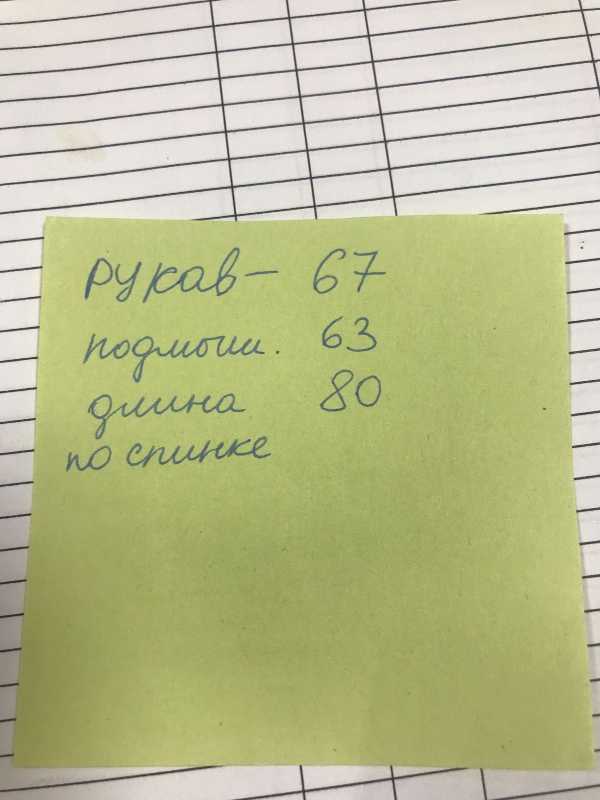 рукав - 67
подмыш. 63
длина 80
по спинке